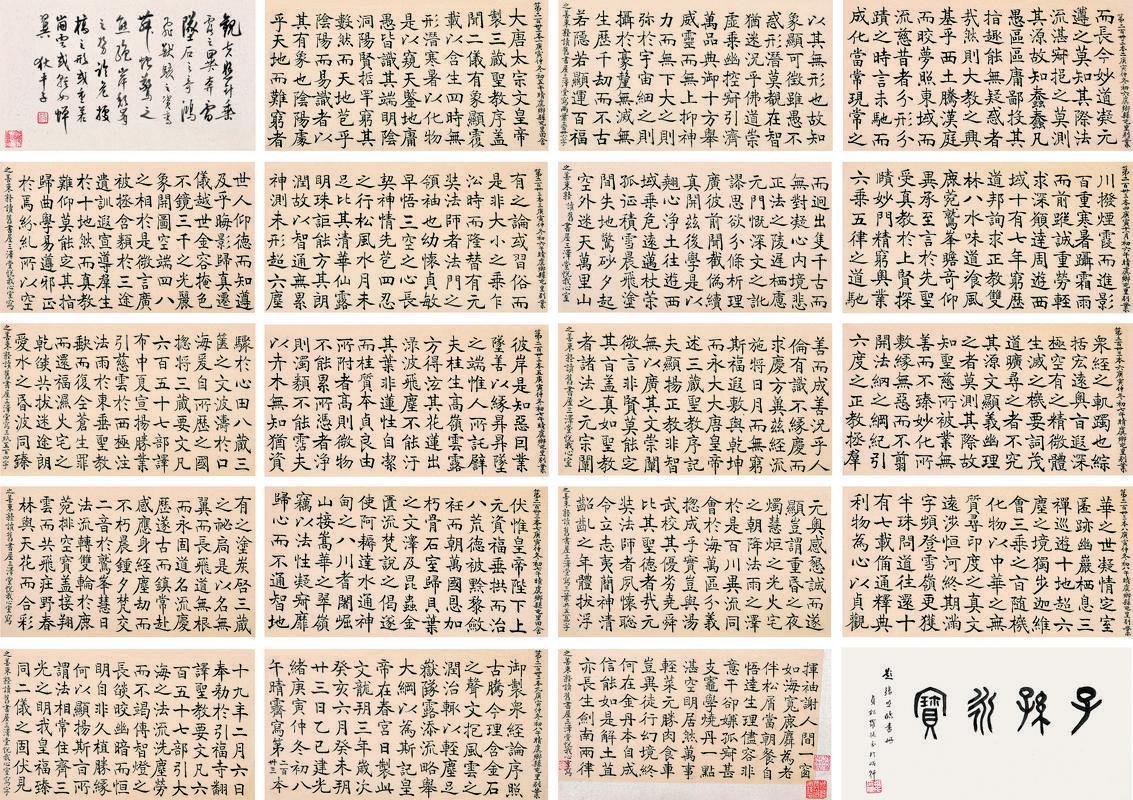 大唐太宗文皇帝
製三藏聖教序蓋
聞二儀有象顯覆
載以含生四時無
形潛寒暑以化物
是以窺天鑒地庸
愚皆識其端明陰
洞陽賢哲罕窮其
數然而天地苞乎
陰陽而易識者以
其有象也陰陽處
乎天地而難窮者
以其無形也故知
象顯可徵雖愚不
惑形潛莫覩在智
猶迷況乎佛道崇
虛乘幽控寂弘濟
萬品典御十方舉
威靈而無上抑神
力而無下大之則
彌於宇宙細之則
攝於豪釐無滅無
生歷千劫而不古
若隱若顯運百福
而長今妙道凝元
遵之莫知其際法
流湛寂挹之莫測
其源故知蠢蠢凡
愚區區庸鄙投其
旨趣能無疑惑者
哉然則大教之興
基乎西土騰漢庭
而皎夢照東域而
流慈昔者分形分
蹟之時言未馳而
成化當常現常之
世人仰德而知遵
及乎晦影歸真遷
儀越世金容掩色
不鏡三千之光麗
象開圖空端四八
之相於是微言廣
被拯含類於三途
遺訓遐宣導群生
於十地然而真教
難仰莫能定其指
歸曲學易遵邪正
於焉紛糺所以空
有之論或習俗而
是非大小之乘乍
沿時而隆替有元
奘法師者法門之
領袖也幼懷貞敏
早悟三空之心長
契神情先苞四忍
之行松風水月未
足比其清華仙露
明珠詎能方其朗
潤故以智通無累
神測未形超六塵
而迥出隻千古而
無對凝心內境悲
正法之陵遲栖慮
元門慨深文之訛
謬思欲分條析理
廣彼前聞截偽續
真開茲後學是以
翹心淨土往遊西
域乘危遠邁杖策
孤征積雪晨飛塗
間失地驚砂夕起
空外迷天萬里山
川撥煙霞而進影
百重寒暑躡霜雨
而前蹤誠重勞輕
求深願達周遊西
域十有七年窮歷
道邦詢求正教雙
林八水味道飡風
鹿菀鷲峯瞻奇仰
異承至言於先聖
受真教於上賢探
賾妙門精窮奧業
六乘五律之道馳
驟於心田八藏三
篋之文波濤於口
海爰自所歷之國
揔將三藏要文凡
六百五十七部譯
布中夏宣揚勝業
引慈雲於西極注
法雨於東垂聖教
缺而復全蒼生罪
而還福濕火宅之
乾燄共拔迷途朗
愛水之昏波同臻
彼岸是知惡因業
墜善以緣昇昇墜
之端惟人所託譬
夫桂生高嶺雲露
方得泫其花蓮出
淥波飛塵不能汙
其葉非蓮性自潔
而桂質本貞良由
所附者高則微物
不能累所憑者淨
則濁類不能霑夫
以卉木無知猶資
善而成善況乎人
倫有識不緣慶而
求慶方冀茲經流
施將日月而無窮
斯福遐敷與乾坤
而永大大唐皇帝
述三藏聖教序記
夫顯揚正教非智
無以廣其文崇闡
微言非賢莫能定
其旨蓋真如聖教
者諸法之元宗
衆經之軌躅也綜
括宏遠奧旨遐深
極空有之精微體
生滅之機要詞茂
道曠尋之者不究
其源文顯義幽理
之者莫測其際故
知聖慈所被業無
善而不臻妙化所
敷緣無惡而不翦
開法網之綱紀弘
六度之正教拯群
有之塗炭啓三藏
之祕扃是以名無
翼而長飛道無根
而永固道名流慶
歷遂古而鎮常赴
感應身經塵劫而
不朽晨鐘夕梵交
二音於鷲峯慧日
法流轉雙輪於鹿
菀排空寶蓋接翔
雲而共飛莊野春
林與天花而合彩
伏惟皇帝陛下上
元資福垂拱而治
八荒德被黔黎斂
衽而朝萬國恩加
朽骨石室歸貝葉
之文澤及昆蟲金
匱流梵說之偈遂
使阿耨達水通神
甸之八川耆闍崛
山接嵩華之翠嶺
竊以法性凝寂靡
歸心而不通智地
元奧感懇誠而遂
顯豈謂重昏之夜
燭慧炬之光火宅
之朝降法雨之澤
於是百川異流同
會於海萬區分義
揔成乎實豈與湯
武校其優劣堯舜
比其聖德者哉元
奘法師者夙懷聰
令立志夷簡神清
齠齔之年體拔浮
華之世凝情定室
匿跡幽巖栖息三
禪巡遊十地超六
塵之境獨步迦維
會三乘之旨隨機
化物以中華之無
質尋印度之真文
遠涉恒河終期滿
字頻登雪嶺更獲
半珠問道往還十
有七載備通釋典
利物為心以貞觀
十九年二月六日
奉勅於弘福寺翻
譯聖教要文凡六
百五十七部引大
海之法流洗塵勞
而不竭傳智燈之
長燄皎幽闇而恒
明自非久植勝緣
何以顯揚斯旨所
謂法相常住齊三
光之明我皇福臻
同二儀之固伏見
御製衆經論序照
古騰今理含金石
之聲文抱風雲之
潤治輒以輕塵足
嶽墜露添流略舉
大綱以為斯記皇
帝在春宮日製此
文龍朔三年歲次
癸亥六月癸未
廿三日乙巳建光
緒庚寅仲冬初八
午晴窗寫第二百卅三本
揮袖謝人間一窗
如海寬
伴松肩當朝餐自
悟達生理儘容非
意干卻嫌孤寂甚
支竈學燒丹一點
空明居然萬
輕菜羹不肉食車
豈異徒行幻境終
何在金丹本自成
信能如是解土直
亦長生劍南兩律
子孫永寶